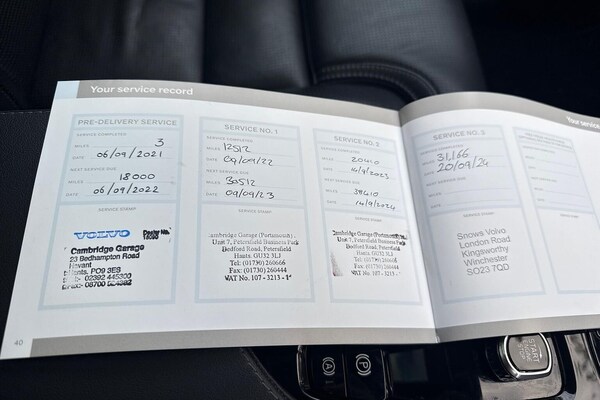 Your service record
PRE-DELIVERY SERVICE
SERVICE COMPLETED
MILES 3
DATE 06/09/2021
NEXT SERVICE DUE
MILES 18000
DATE 06/09/2022
SERVICE STAMP
VOLVO Dealer No.
Cambridge Garage
23 Bedhampton Road
Havant
Hants, PO9 3ES
SERVICE NO. 1
SERVICE COMPLETED
MILES 12512
DATE 09/09/22
NEXT SERVICE DUE
MILES 30512
DATE 09/09/23
SERVICE STAMP
Cambridge Garage (Portsmouth)
Unit 7, Petersfield Business Park
Bedford Road, Petersfield
Hants. GU32 3LJ
Tel: (01730) 260666
Fax: (01730) 260444
VAT No. 107 - 3213 - 1
SERVICE NO. 2
SERVICE COMPLETED
MILES 20410
DATE 14/9/2023
NEXT SERVICE DUE
MILES 38410
DATE 14/9/2024
SERVICE STAMP
Cambridge Garage (Portsmouth)
Unit 7, Petersfield Business Park
Bedford Road, Petersfield
Hants. GU32 3LJ
Tel: (01730) 260666
Fax: (01730) 260444
VAT No. 107 - 3213 - 1
SERVICE NO. 3
SERVICE COMPLETED
MILES 31,166
DATE 20/09/24
NEXT SERVICE DUE
MILES
DATE
SERVICE STAMP
Snows Volvo
London Road
Kingsworthy
Winchester
SO23 7QD
Your service
40
(A)
(P)
START
STOP